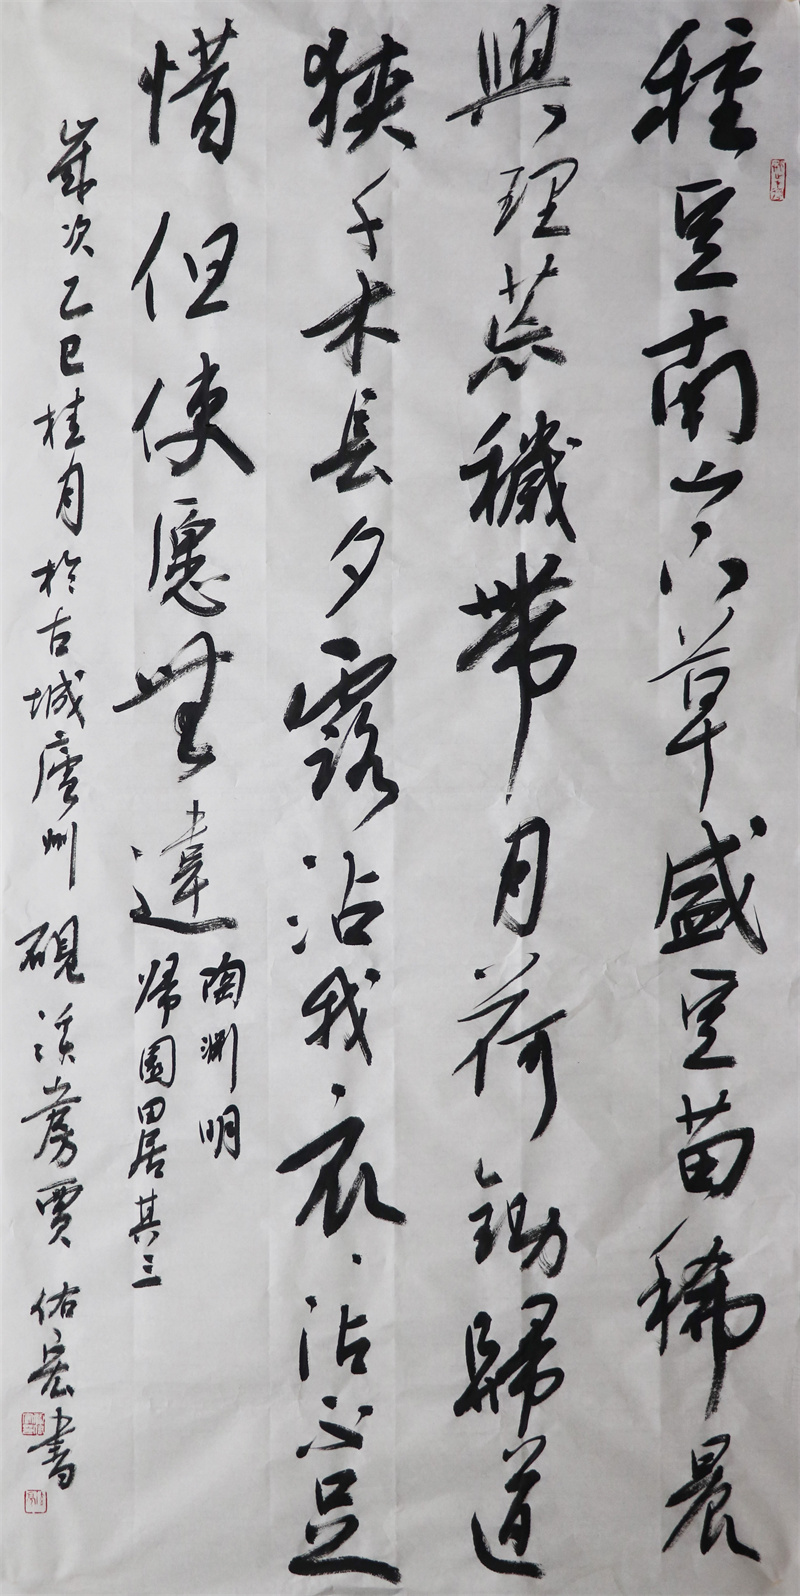 種豆南山下草盛豆苗稀晨
興理荒穢帶月荷鋤歸道
狹草木長夕露沾我衣、沾不足
惜但使愿無違
陶淵明
歸園田居其三
歲次乙巳桂月於古城廬州硯溪房賈佑宏書